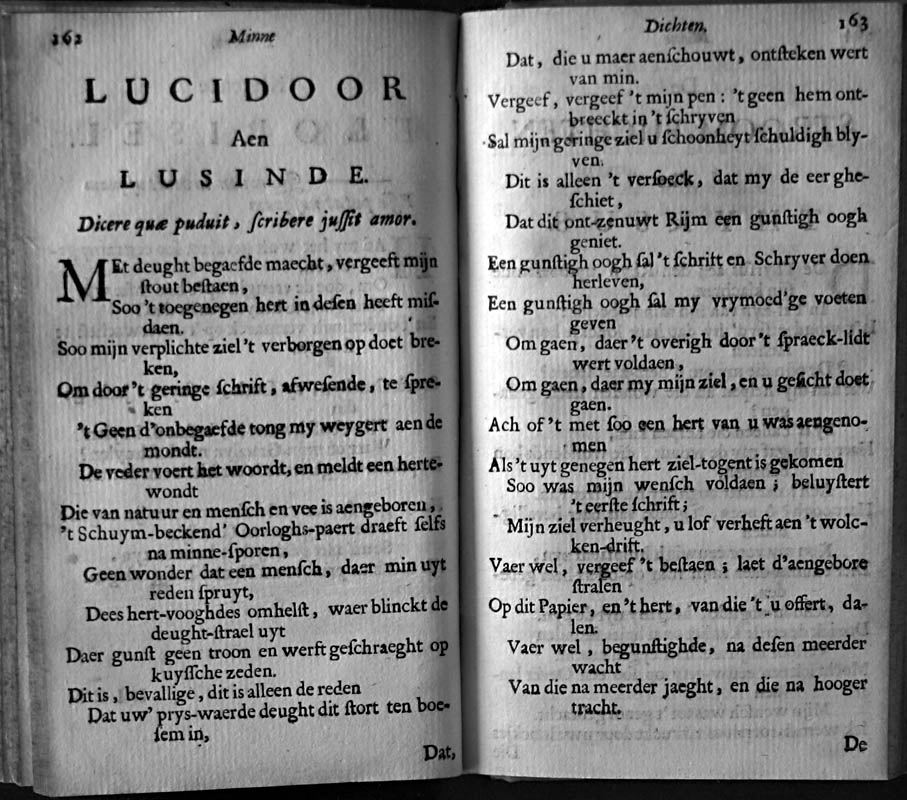 162
Minne
LUCIDOOR
Aen
LUSINDE.
Dicere quæ puduit, ſcribere juſſit amor.
MEt deught begaefde maecht, vergeeft mijn
ſtout beſtaen,
Soo 't toegenegen hert in deſen heeft miſ-
daen.
Soo mijn verplichte ziel 't verborgen op doet bre-
ken,
Om door 't geringe ſchrift, afweſende, te ſpre-
ken
't Geen d'onbegaefde tong my weygert aen de
mondt.
De veder voert het woordt, en meldt een herte-
wondt
Die van natuur en menſch en vee is aengeboren,
't Schuym-beckend' Oorloghs-paert draeft ſelfs
na minne-ſporen,
Geen wonder dat een menſch, daer min uyt
reden ſpruyt,
Dees hert-vooghdes omhelſt, waer blinckt de
deught-ſtrael uyt
Daer gunſt geen troon en werft geſchraeght op
kuyſſche zeden.
Dit is, bevallige, dit is alleen de reden
Dat uw' prys-waerde deught dit ſtort ten boe-
ſem in,
Dat,
Dichten.
163
Dat, die u maer aenſchouwt, ontſteken wert
van min.
Vergeef, vergeef 't mijn pen: 't geen hem ont-
breeckt in 't ſchryven
Sal mijn geringe ziel u ſchoonheyt ſchuldigh bly-
ven.
Dit is alleen 't verſoeck, dat my de eer ghe-
ſchiet,
Dat dit ont-zenuwt Rijm een gunſtigh oogh
geniet.
Een gunſtigh oogh ſal 't ſchrift en Schryver doen
herleven,
Een gunſtigh oogh ſal my vrymoed'ge voeten
geven
Om gaen, daer 't overigh door 't ſpraeck-lidt
wert voldaen,
Om gaen, daer my mijn ziel, en u geſicht doet
gaen.
Ach of 't met ſoo een hert van u was aengeno-
men
Als 't uyt genegen hert ziel-togent is gekomen
Soo was mijn wenſch voldaen; beluyſtert
't eerſte ſchrift;
Mijn ziel verheught, u lof verheft aen 't wolc-
ken-drift.
Vaer wel, vergeef 't beſtaen; laet d'aengebore
ſtralen
Op dit Papier, en 't hert, van die 't u offert, da-
len.
Vaer wel, begunſtighde, na deſen meerder
wacht
Van die na meerder jaeght, en die na hooger
tracht.
De